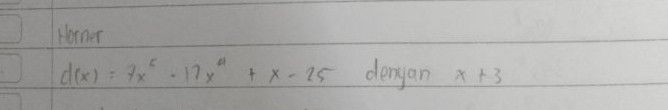 Horner
d(x) = 7x⁵ - 17x⁴ + x - 25 dengan x + 3